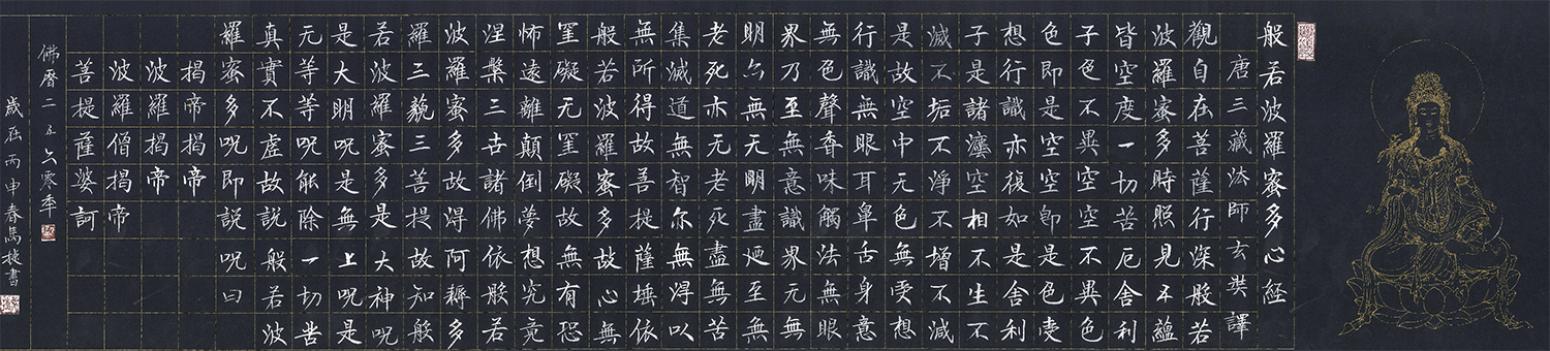 般若波羅蜜多心経
唐三藏法師玄奘譯
觀自在菩薩行深般若
波羅蜜多時照見五蘊
皆空度一切苦厄舍利
子色不異空空不異色
色即是空空即是色受
想行識亦復如是舍利
子是諸灋空相不生不
滅不垢不淨不增不減
是故空中无色無受想
行識無眼耳鼻舌身意
無色聲香味觸法無眼
界乃至無意識界无無
明亦無无明盡迺至無
老死亦无老死盡無苦
集滅道無智亦無得以
無所得故菩提薩埵依
般若波羅蜜多故心無
罣礙无罣礙故無有恐
怖遠離顛倒夢想究竟
涅槃三世諸佛依般若
波羅蜜多故得阿耨多
羅三藐三菩提故知般
若波羅蜜多是大神呪
是大明呪是無上呪是
无等等呪能除一切苦
真實不虛故說般若波
羅蜜多呪即說呪曰
揭帝揭帝
波羅揭帝
波羅僧揭帝
菩提薩婆訶
佛曆二五六零年
歲在丙申春馬捷書